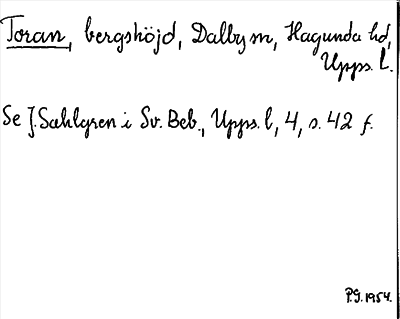 Toran, bergshöjd, Dalby sn, Hagunda hd,
Upps. l.
Se J. Sahlgren i Sv. Beb., Upps. l, 4, s. 42 f.
P.G. 1954.